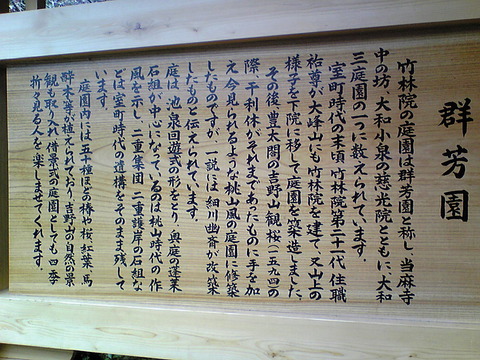 群芳園
竹林院の庭園は群芳園と称し、当麻寺
中の坊、大和小泉の慈光院とともに、大和
三庭園の一つに数えられています。
室町時代の末頃 竹林院第二十一代 住職
祐尊が大峰山にも竹林院を建て 又山上の
様子を下院に移して庭園を築造しました。
その後 豊太閤の吉野山観桜(一五九四)の
際、千利休がそれまであったものに手を加
え 今見られるような桃山風の庭園に修築
したものですが、一説には 細川幽斎が改築
したものと伝えられています。
庭は、池泉回遊式の形をとり、奥庭の蓬莱
石組が中心になっているのは桃山時代の作
風を示し、二重集団、二重護岸の石組な
どは室町時代の遺構をそのまま残して
います。
庭園内には五十種ほどの椿や桜、紅葉、馬
酔木等が植えられており、吉野山の自然の景
観も取り入れ 借景式の庭園としても四季
折々見る人を楽しませてくれます。